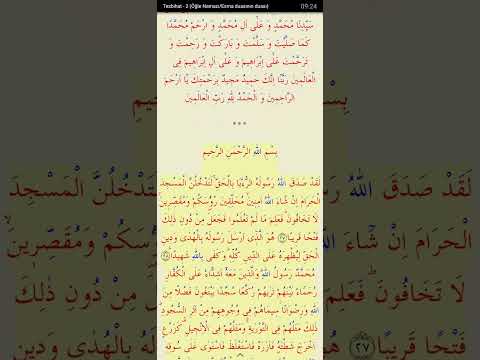 Tesbihat - 3 (Öğle Namazı/Esma duasının duası) 09:24
سَيِّدِنَا مُحَمَّدٍ وَ عَلٰٓى اٰلِ مُحَمَّدٍ وَ ارْحَمْ مُحَمَّدًا
كَمَا صَلَّيْتَ وَ سَلَّمْتَ وَ بَارَكْتَ وَ رَحِمْتَ وَ
تَرَحَّمْتَ عَلٰٓى اِبْرَاهِيمَ وَ عَلٰٓى اٰلِ اِبْرَاهِيمَ فِى
الْعَالَمِينَ رَبَّنَا اِنَّكَ حَمِيدٌ مَجِيدٌ بِرَحْمَتِكَ يَٓا اَرْحَمَ
الرَّاحِمِينَ وَ الْحَمْدُ لِلّٰهِ رَبِّ الْعَالَمِينَ
***
بِسْمِ اللّٰهِ الرَّحْمٰنِ الرَّحِيمِ
لَقَدْ صَدَقَ اللّٰهُ رَسُولَهُ الرُّءْيَا بِالْحَقِّ لَتَدْخُلُنَّ الْمَسْجِدَ
الْحَرَامَ اِنْ شَٓاءَ اللّٰهُ اٰمِنِينَ مُحَلِّقِينَ رُؤُسَكُمْ وَمُقَصِّرِينَ
لَا تَخَافُونَ فَعَلِمَ مَا لَمْ تَعْلَمُوا فَجَعَلَ مِنْ دُونِ ذٰلِكَ
فَتْحًا قَرِيبًا ﴿٢٧﴾ هُوَ الَّذٓى اَرْسَلَ رَسُولَهُ بِالْهُدٰى وَدِينِ
الْحَقِّ لِيُظْهِرَهُ عَلَى الدِّينِ كُلِّهِ وَكَفٰى بِاللّٰهِ شَهِيدًا ﴿٢٨﴾
مُحَمَّدٌ رَسُولُ اللّٰهِ وَالَّذِينَ مَعَهُٓ اَشِدَّٓاءُ عَلَى الْكُفَّارِ
رُحَمَٓاءُ بَيْنَهُمْ تَرٰيهُمْ رُكَّعًا سُجَّدًا يَبْتَغُونَ فَضْلًا مِنَ
اللّٰهِ وَرِضْوَانًا سِيمَاهُمْ فِى وُجُوهِهِمْ مِنْ اَثَرِ السُّجُودِ
ذٰلِكَ مَثَلُهُمْ فِى التَّوْرٰيةِ وَمَثَلُهُمْ فِى الْاِنْجِيلِ كَزَرْعٍ
اَخْرَجَ شَطْـَٔهُ فَاٰزَرَهُ فَاسْتَغْلَظَ فَاسْتَوٰى عَلٰى سُوقِهِ